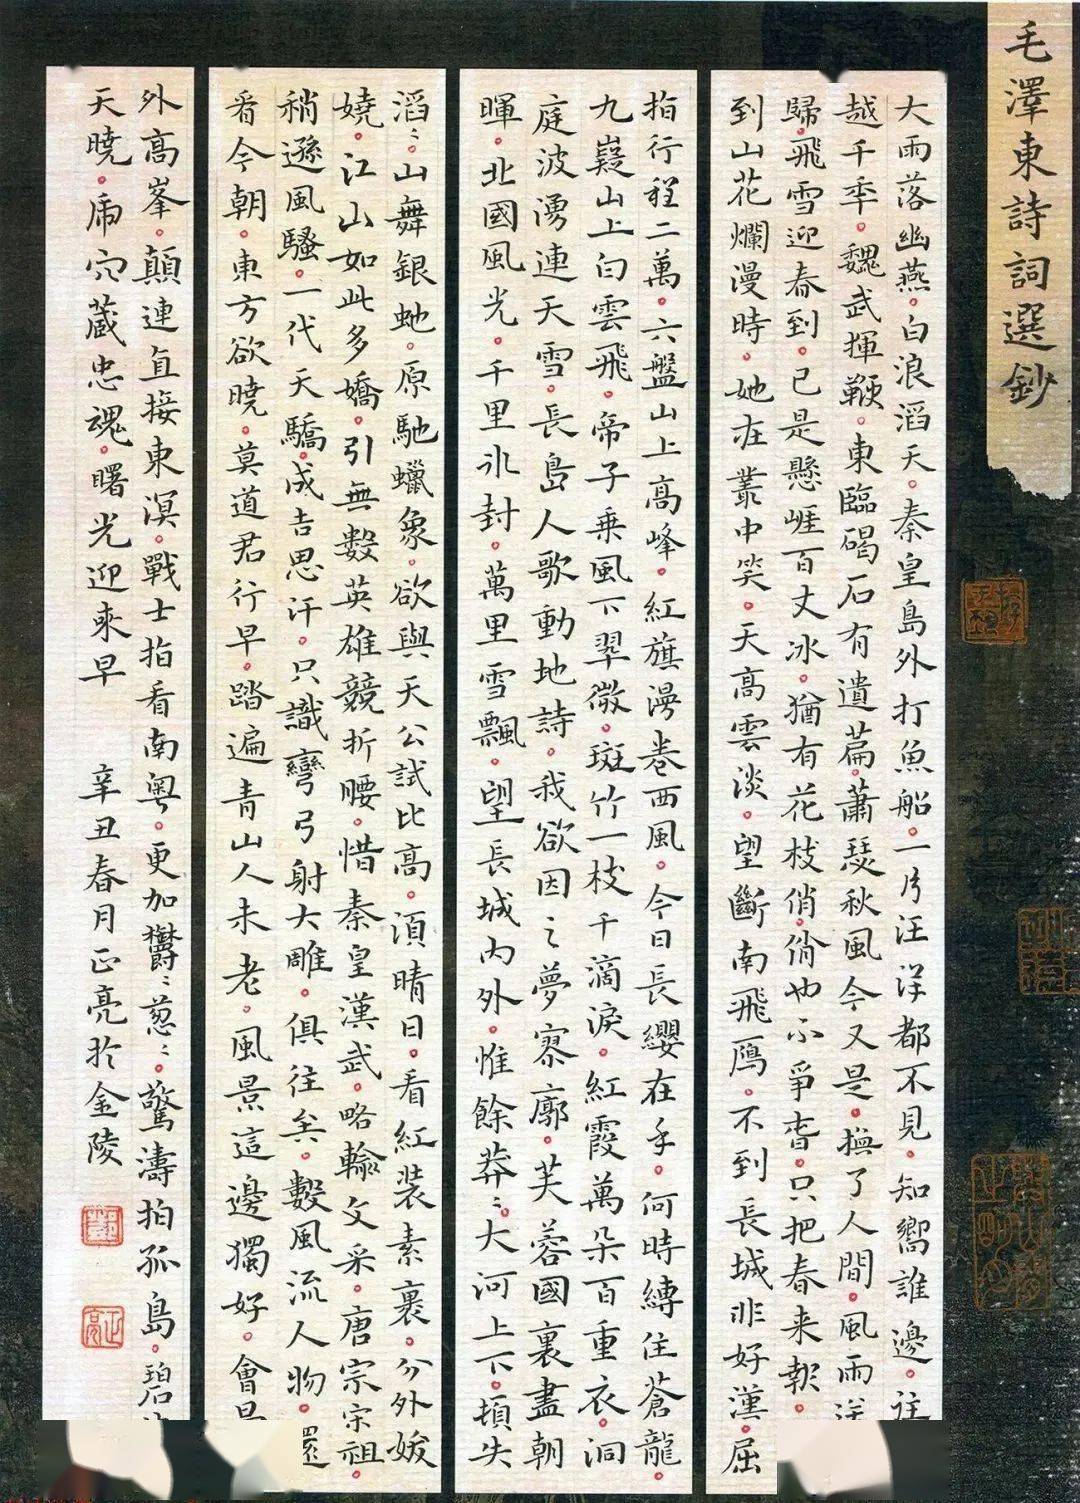 毛澤東詩詞選鈔
大雨落幽燕。白浪滔天。秦皇島外打魚船。一片汪洋都不見。知嚮誰邊。往
越千年。魏武揮鞭。東臨碣石有遺篇。蕭瑟秋風今又是。換了人間。風雨送
歸。飛雪迎春到。已是懸崖百丈冰。猶有花枝俏。俏也不爭春。只把春来報。
到山花爛漫時。她在叢中笑。天高雲淡。望斷南飛鴈。不到長城非好漢。屈
指行程二萬。六盤山上高峰。紅旗漫卷西風。今日長纓在手。何時縛住蒼龍。
九嶷山上白雲飛。帝子乘風下翠微。斑竹一枝千滴淚。紅霞萬朵百重衣。洞
庭波湧連天雪。長島人歌動地詩。我欲因之夢寥廓。芙蓉國裏盡朝
暉。北國風光。千里冰封。萬里雪飄。望長城內外。惟餘莽〻。大河上下。頓失
滔〻。山舞銀虵。原馳蠟象。欲與天公試比高。須晴日。看紅装素裹。分外妖
嬈。江山如此多嬌。引無數英雄競折腰。惜秦皇漢武。略輸文采。唐宗宋祖。
稍遜風騷。一代天驕。成吉思汗。只識彎弓射大雕。俱往矣。數風流人物。還
看今朝。東方欲曉。莫道君行早。踏遍青山人未老。風景這邊獨好。會昌
外高峯。顛連直接東溟。戰士指看南粤。更加欝〻葱〻。驚濤拍孤島。碧
天曉。席穴蔵忠魂。曙光迎來早 辛丑春月正亮於金陵